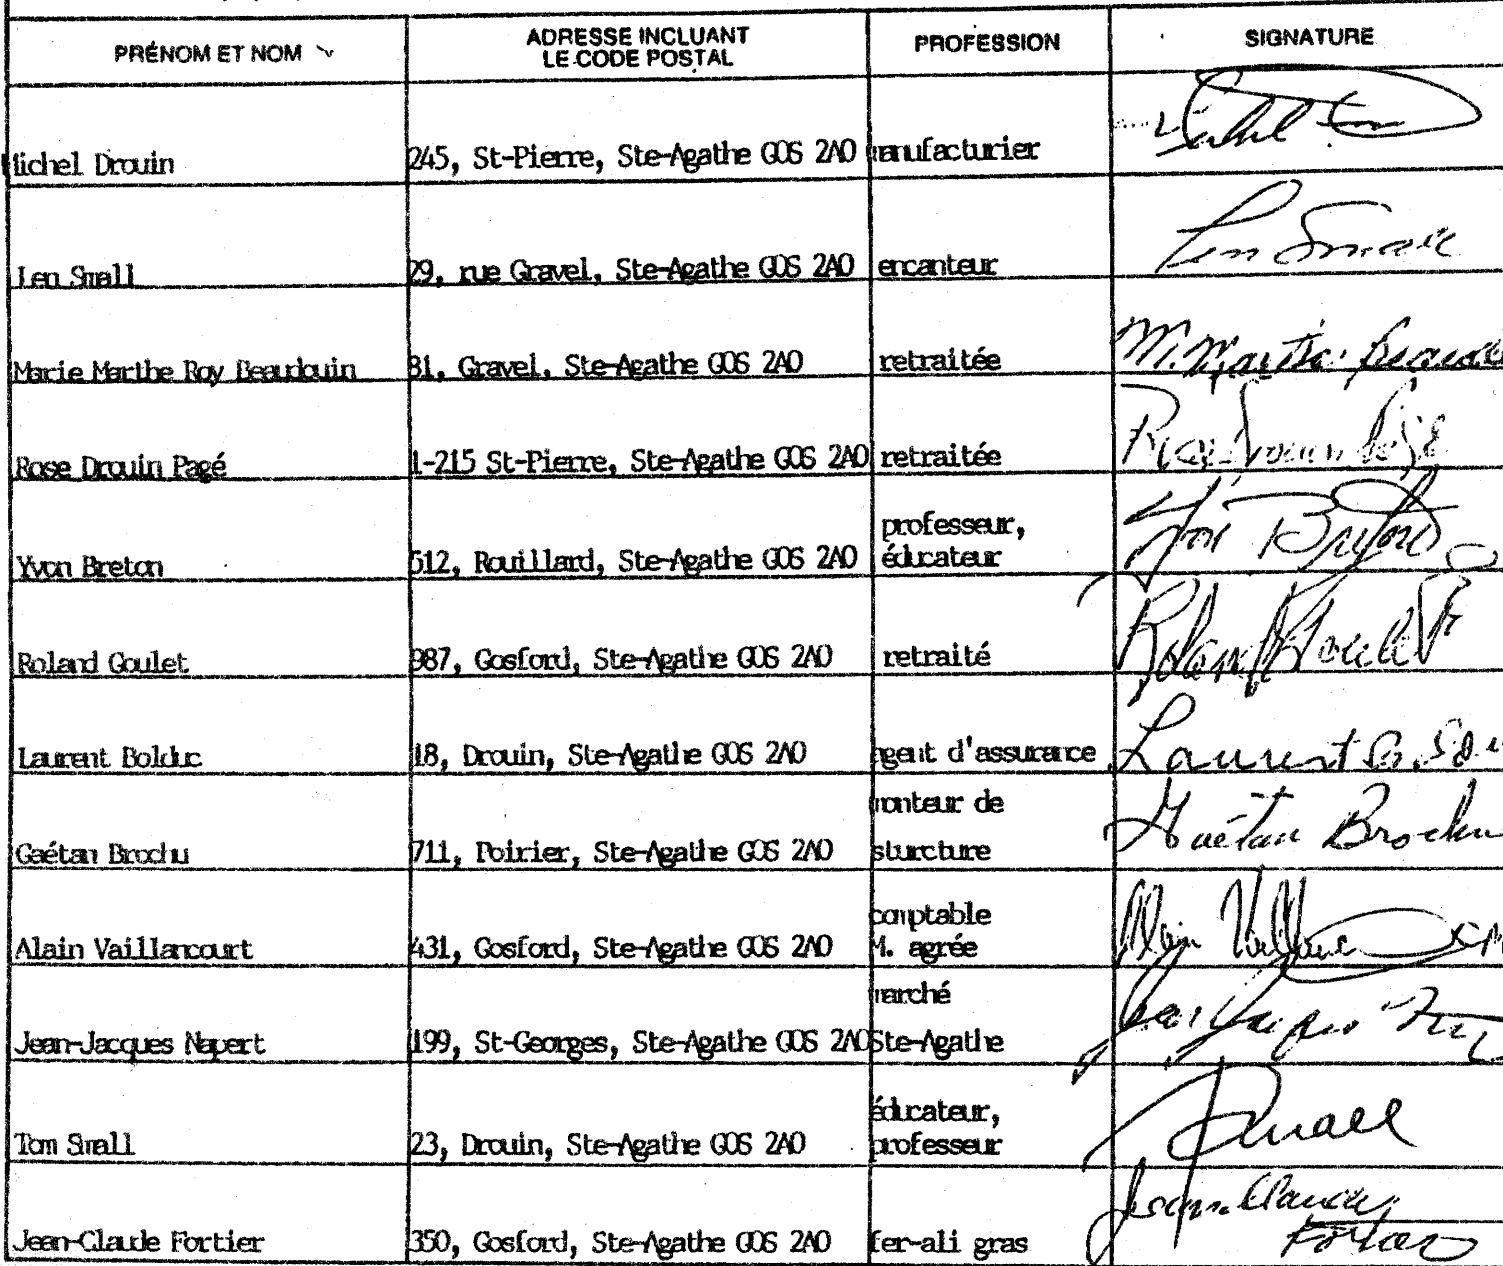 PRÉNOM ET NOM
ADRESSE INCLUANT
LE CODE POSTAL
PROFESSION
SIGNATURE
Michel Drouin
245, St-Pierre, Ste-Agathe G0S 2A0
manufacturier
Len Small
29, rue Gravel, Ste-Agathe G0S 2A0
encanteur
Len Small
Marie Marthe Roy Beaudouin
81, Gravel, Ste-Agathe G0S 2A0
retraitée
Rose Drouin Pagé
1-215 St-Pierre, Ste-Agathe G0S 2A0
retraitée
Yvon Breton
512, Rouillard, Ste-Agathe G0S 2A0
professeur,
éducateur
Roland Goulet
987, Gosford, Ste-Agathe G0S 2A0
retraité
Roland Goulet
Laurent Bolduc
18, Drouin, Ste-Agathe G0S 2A0
agent d'assurance
Laurent
Gaétan Brochu
711, Poirier, Ste-Agathe G0S 2A0
monteur de
sturcture
Gaétan Brochu
Alain Vaillancourt
431, Gosford, Ste-Agathe G0S 2A0
comptable
M. agrée
Jean-Jacques Napert
199, St-Georges, Ste-Agathe G0S 2A0
marché
Ste-Agathe
Tom Small
23, Drouin, Ste-Agathe G0S 2A0
éducateur,
professeur
Jean-Claude Fortier
350, Gosford, Ste-Agathe G0S 2A0
fer-ali gras
Jean-Claude
Fortier